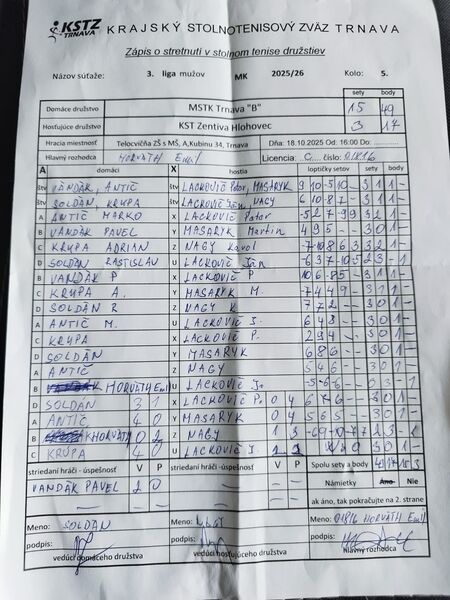 KSTZ TRNAVA KRAJSKÝ STOLNOTENISOVÝ ZVÄZ TRNAVA
Zápis o stretnutí v stolnom tenise družstiev
Názov súťaže: 3. liga mužov MK 2025/26 Kolo: 5.
sety body
Domáce družstvo MSTK Trnava "B" 15 49
Hosťujúce družstvo KST Zentiva Hlohovec 3 17
Hracia miestnosť Telocvičňa ZŠ s MŠ, A,Kubinu 34, Trnava Dňa: 18.10.2025 Od: 16:00 Do:
Hlavný rozhodca HORVÁTH Emil Licencia: C číslo:
A domáci X hostia loptičky setov sety body
štv VANDÁK, ANTIČ štv LACKOVIČ Peter, MASARYK 9 10 -5 10 - 3 1 1 -
štv SOLDÁN, KRUPA štv LACKOVIČ Ján, NAGY 6 10 -8 7 - 3 1 1 -
A ANTIČ MARKO X LACKOVIČ Peter -5 2 7 -9 9 3 2 1 -
B VANDÁK PAVEL Y MASARYK Martin 4 9 5 - - 3 0 1 -
C KRUPA ADRIAN Z NAGY Karol -7 10 8 6 3 3 2 1 -
D SOLDÁN RASTISLAV U LACKOVIČ Ján 6 -3 7 -10 -5 2 3 - 1
B VANDÁK P X LACKOVIČ P 10 6 -8 5 - 3 1 1 -
C KRUPA A. Y MASARYK M. -7 4 4 9 - 3 1 1 -
D SOLDÁN R Z NAGY K 7 7 2 - - 3 0 1 -
A ANTIČ M. U LACKOVIČ J. 6 4 8 - - 3 0 1 -
C KRUPA X LACKOVIČ P. 2 9 4 - - 3 0 1 -
D SOLDÁN Y MASARYK 6 8 6 - - 3 0 1 -
A ANTIČ Z NAGY 5 4 6 - - 3 0 1 -
B HORVÁTH Emil U LACKOVIČ Ján -5 -6 -6 - - 0 3 - 1
D SOLDÁN 3 1 X LACKOVIČ P. 0 4 6 7 6 - - 3 0 1 -
A ANTIČ 4 0 Y MASARYK 0 4 5 6 5 - - 3 0 1 -
B HORVÁTH 0 2 Z NAGY 1 3 2 3 - 1
C KRUPA 4 0 U LACKOVIČ J. 3 0 1 -
striedaní hráči - úspešnosť V P striedaní hráči - úspešnosť V P Spolu sety a body 49 17 15 3
VANDÁK PAVEL 2 0 Námietky Áno Nie
ak áno, tak pokračujte na 2. strane
Meno: SOLDÁN Meno: NAGY Meno: HORVÁTH Emil
podpis: podpis: podpis:
vedúci domáceho družstva vedúci hosťujúceho družstva hlavný rozhodca